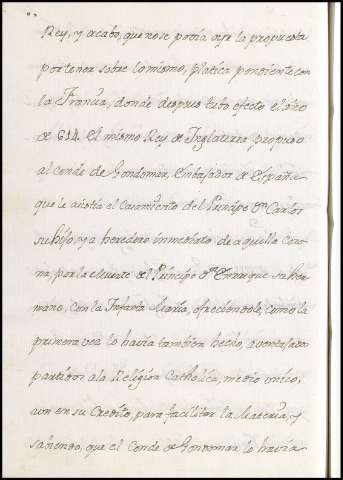 Rey, y acabo, que no se podia oyr la propuesta
por tener sobre lo mismo, platica pendiente con
la Francia, donde despues tubo efecto el año
de 614. El mismo Rey de Inglaterra propuso
al Conde de Gondomar, Embaxador de España
que le admitia el Casamiento del Principe Dn Carlos
su hijo, ya heredero inmediato de aquella Coro-
na, por la muerte del Principe Dn Enrrique su her-
mano, con la Infanta Maria, ofreciendole, como la
primera vez lo havia tambien hecho, aventajados
partidos a la Religion Catholica, medio unico,
aun en su Credito, para facilitar la Materia; y
saviendo, que el Conde de Gondomar lo havia